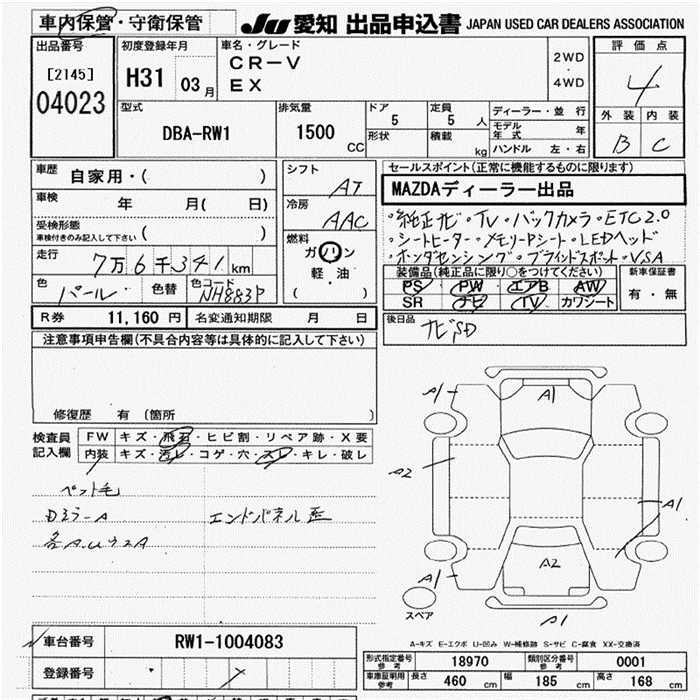 車内保管・守衛保管
JU 愛知 出品申込書 JAPAN USED CAR DEALERS ASSOCIATION
出品番号
[2145]
04023
初度登録年月
H31 03 月
車名・グレード
CR-V
EX
2WD
・
4WD
評価点
4
外装 内装
B C
型式
DBA-RW1
排気量
1500 CC
ドア
5
定員
5 人
形状
積載
kg
ディーラー・並行
モデル年式 年
ハンドル 左・右
車歴 自家用・( )
車検 年 月( 日)
受検形態
車検付きのみ記入して下さい ( )
走行 7万6千341 km
色 パール 色替 色コード NH883P
シフト
AT
冷房
AAC
燃料
ガソリン
軽・油
( )
セールスポイント(正常に機能するものに限ります)
MAZDAディーラー出品
・純正ナビ・TV・バックカメラ・ETC2.0
・シートヒーター・メモリーPシート・LEDヘッド
・ホンダセンシング・ブラインドスポット・VSA
装備品(純正品に限り○をつけてください)
PS PW エアB AW
SR ナビ TV カワシート
新車保証書
有・無
R券 11,160 円 名変通知期限 月 日
後日品
ナビSD
注意事項申告欄(不具合内容等は具体的に記入して下さい)
修復歴 有 (箇所 )
検査員
記入欄
FW キズ・飛石・ヒビ割・リペア跡・X要
内装 キズ・汚レ・コゲ・穴・スレ・キレ・破レ
ペット毛
Dミラ-A
エンドパネル歪
各A.Uワス A
A1
A1
A2
A1
A2
A1
A1
スペア
A-キズ E-エクボ U-凹み W-補修跡 S-サビ C-腐食 XX-交換済
車台番号 RW1-1004083
登録番号
形式指定番号
参考
18970
類別区分番号
参考
0001
車庫証明用
参考
長さ 460 cm 幅 185 cm 高さ 168 cm